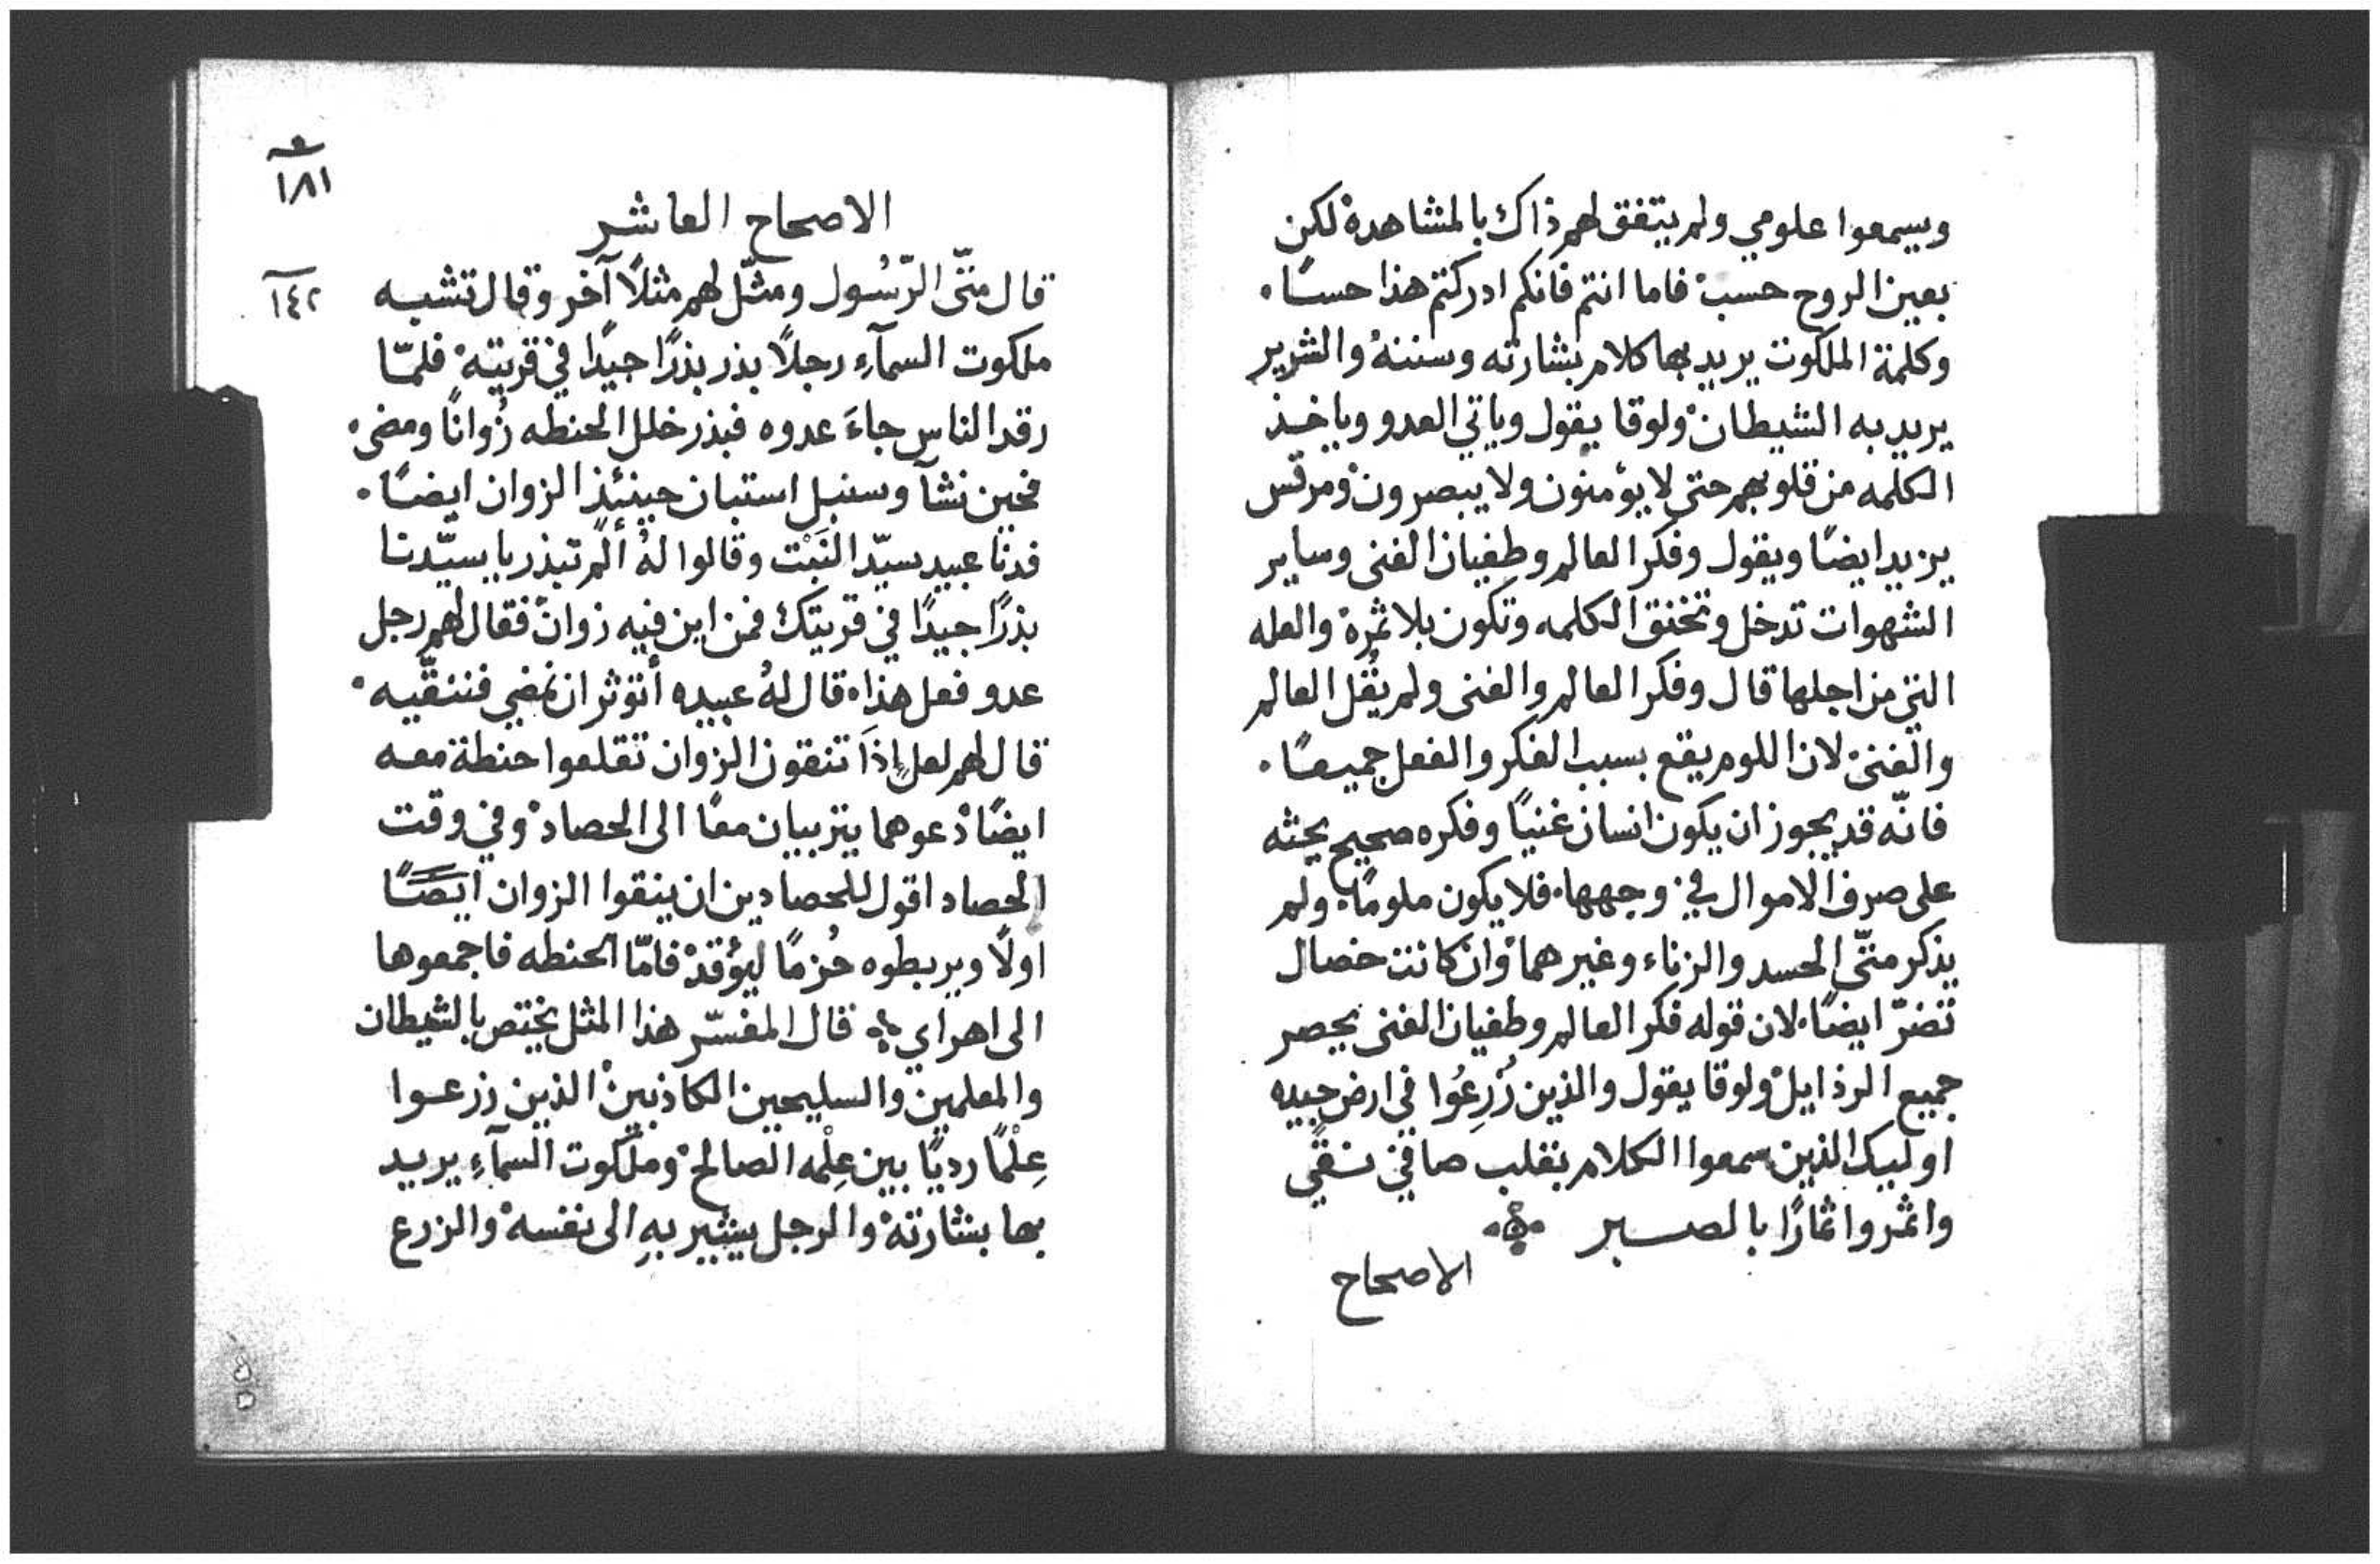 ويسمعوا علومي ولم يتفق لهم ذاك بالمشاهدة لكن
بعين الروح حسب فاما انتم فانكم ادركتم هذا حسًا.
وكلمة الملكوت يريد بها كلام بشارته وسننهُ والشرير
يريد به الشيطان ولوقا يقول وياتي العدو وياخذ
الكلمه من قلوبهم حتى لا يؤمنون ولا يبصرون ومرقس
يزيد ايضًا ويقول وفكر العالم وطغيان الغنى وساير
الشهوات تدخل وتخنق الكلمه وتكون بلا ثمرة والعله
التي من اجلها قال وفكر العالم والغنى ولم يقُل العالم
والغنى لان اللوم يقع بسبب الفكر والفعل جميعًا.
فانّه قد يجوز ان يكون انسان غنيًا وفكره صحيح يحثه
على صرف الاموال في وجهها. فلا يكون ملومًا. ولم
يذكر متّى الحسد والزناء وغيرهما وان كانت خصال
تضرّ ايضًا. لان قوله فكر العالم وطغيان الغنى يحصر
جميع الرذايل ولوقا يقول والذين زُرِعُوا في ارض جيده
اوليك الذين سمعوا الكلام بقلب صافي نقي
واثمروا ثمارًا بالصبر
الاصحاح
١٨١
الاصحاح العاشر
قال متّى الرّسُول ومثّل لهم مثلاً آخر وقال تشبه
١٤٢
ملكوت السمآءِ رجلاً بذر بذرًا جيدًا في قريته فلمّا
رقد الناس جاءَ عدوه فبذر خلل الحنطه زُوانًا ومضى.
فحين نشآ وسنبل استبان حينئذٍ الزوان ايضًا.
فدنا عبيد سيّد البَيْت وقالوا لهُ ألم تبذر يا سيّدنا
بذرًا جيدًا في قريتك فمن اين فيه زوانٌ فقال لهم رجل
عدو فعل هذا. قال لهُ عبيده أتؤثر ان نمضي فننقّيه.
قال لهم لعل اذَا تنقون الزوان تقلعوا حنطة معه
ايضًا دعوهما يتربيان معًا الى الحصاد وفي وقت
الحصاد اقول للحصادين ان ينقوا الزوان ايضًا
اولًا ويربطوه حُزمًا ليؤقد فامّا الحنطه فاجمعوها
الى اهراي قال المفسّر هذا المثل يختص بالشيطان
والمعلمين والسليحين الكاذبين الذين زرعوا
عِلْمًا رديًا بين عِلْمه الصالح وملكوت السمآءِ يريد
بها بشارته والرجل يشير بهِ الى نفسه والزرع